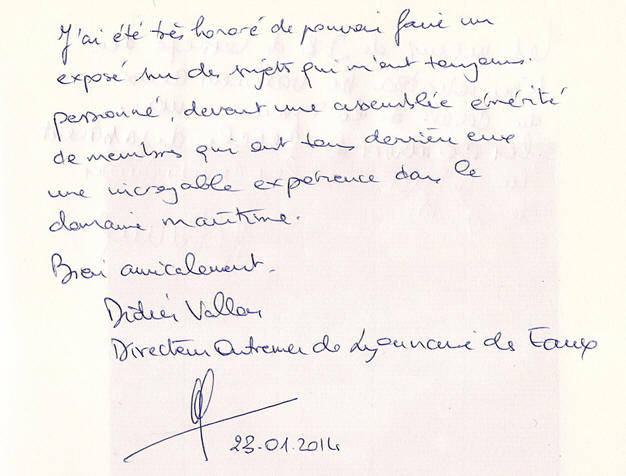 J'ai été très honoré de pouvoir faire un
exposé sur des sujets qui m'ont toujours
passionné, devant une assemblée émérité
de membres qui ont tous derrière eux
une incroyable expérience dans le
domaine maritime.
Bien amicalement.
Didier Vallon
Directeur Outremer de Lyonnaise des Eaux
23.01.2014